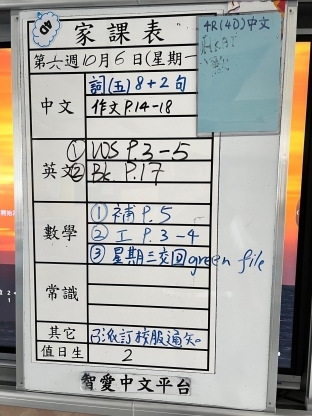 4D
家課表
4R(4D)中文
第六週10月6日(星期一
中文
詞(五)8+2句
作文P.14-18
英文
① VOS P.3-5
② Bk P.17
數學
① 補 P.5
② 工 P.3-4
③ 星期三交回green file
常識
其它
已派訂校服通知。
值日生
2
智愛中文平台